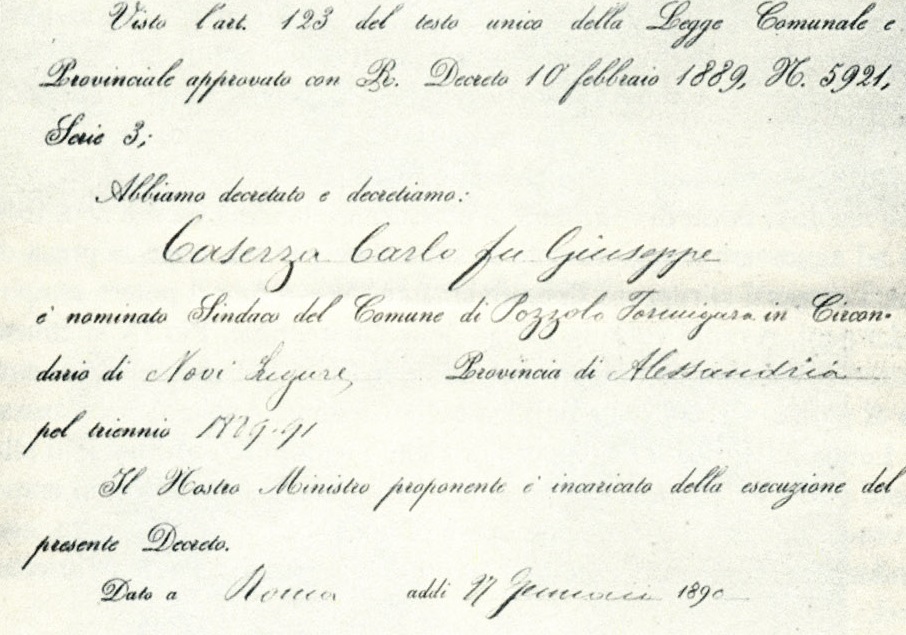 Visto l'art. 123 del testo unico della Legge Comunale e
Provinciale approvato con R. Decreto 10 febbraio 1889, N. 5921,
Serie 3;
Abbiamo decretato e decretiamo:
Caserza Carlo fu Giuseppe
è nominato Sindaco del Comune di Pozzolo Formigaro in Circon-
dario di Novi Ligure, Provincia di Alessandria
pel triennio 1889-91
Il Nostro Ministro proponente è incaricato della esecuzione del
presente Decreto.
Dato a Roma addì Gennaio 1890